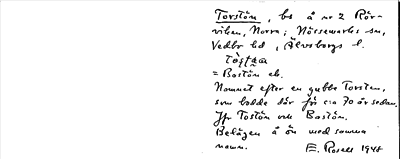 Torstön, bs å nr 2 Rör-
viken, Norra; Nössemarks sn,
Vedbo hd, Älvsborgs l.
= Bostön eb.
Namnet efter en gubbe Torsten,
som bodde där för c:a 70 år sedan.
Jfr Tostön och Bostön.
Belägen å ön med samma
namn. E. Rosell 1948